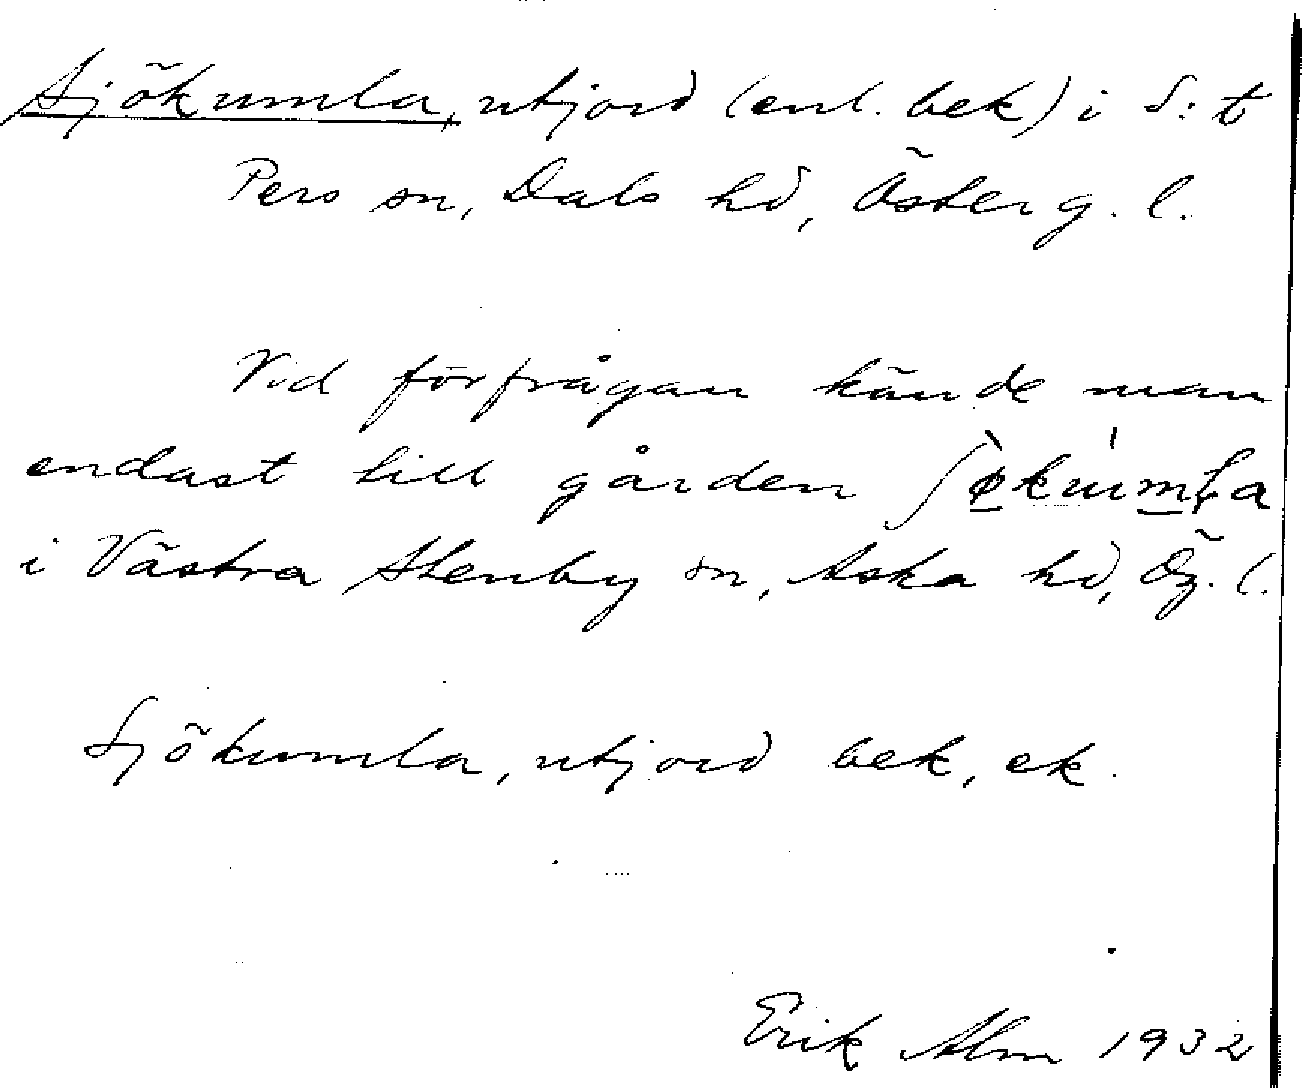 Sjökumla, utjord (enl. bek) i S:t
Pers sn, Dals hd, Österg. l.
Vid förfrågan kände man
endast till gården
i Västra Stenby sn, Aska hd, Ög. l.
Sjökumla, utjord bek, ek.
Erik Alm 1932